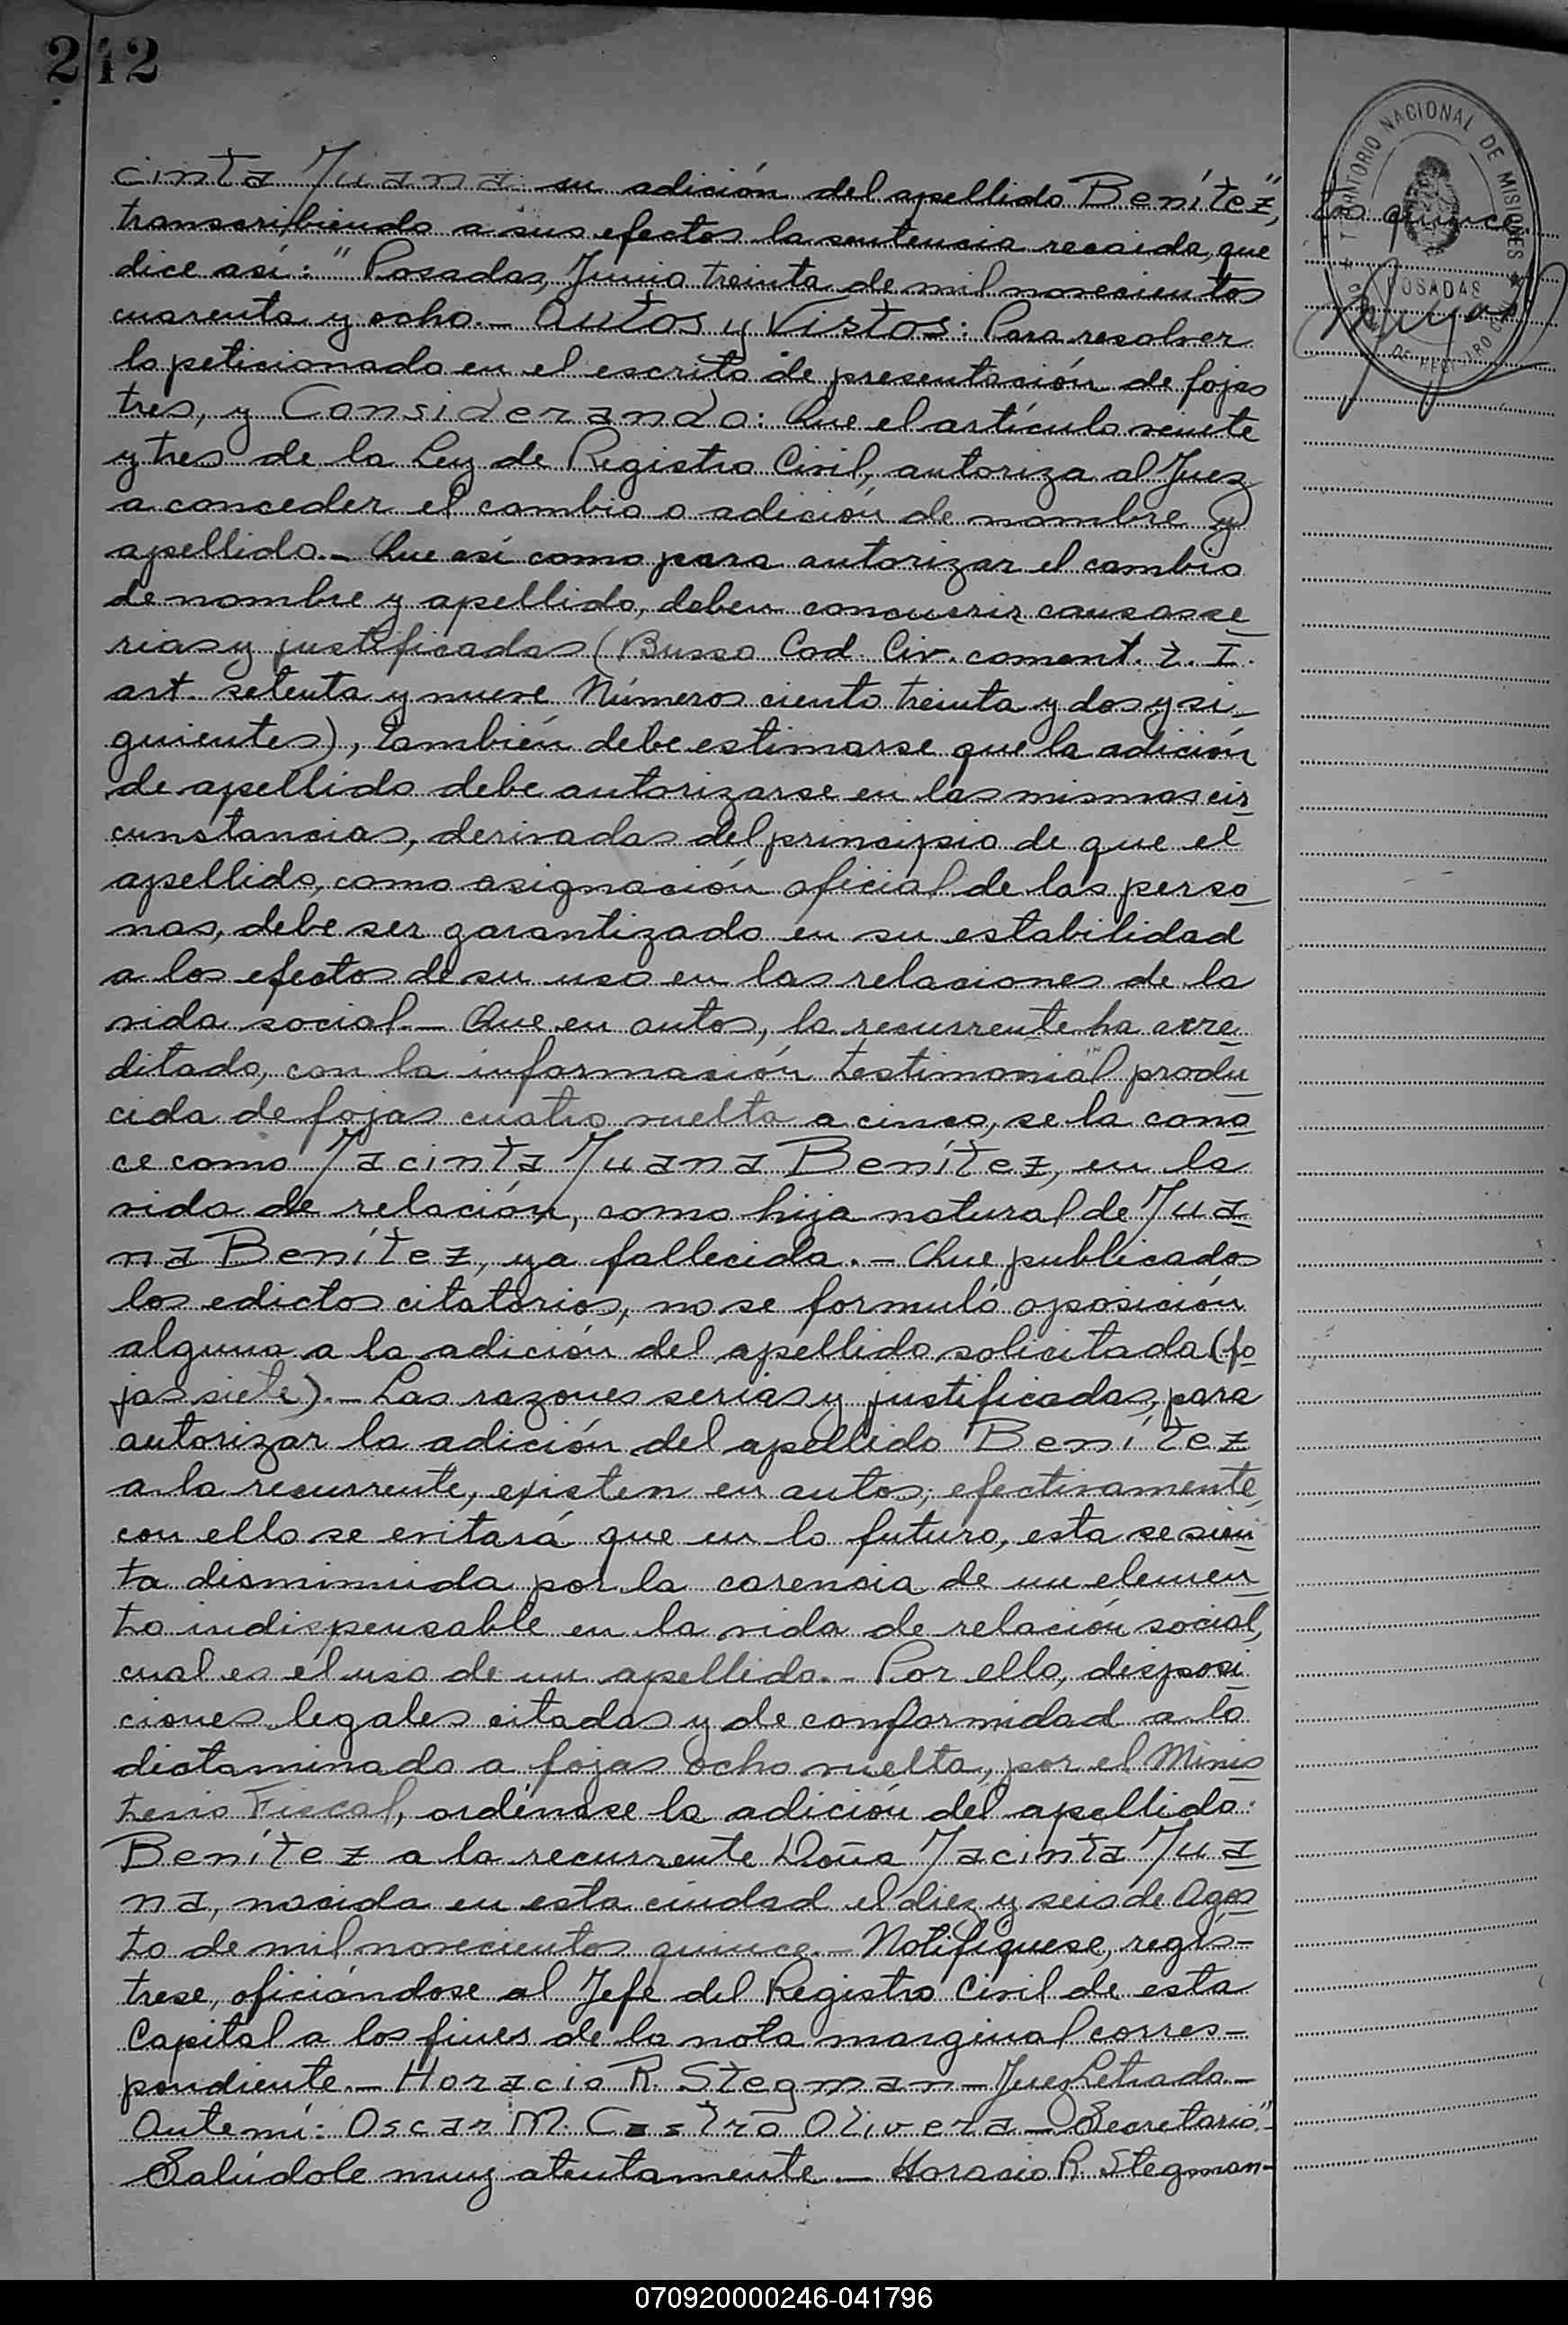 242
cinta Juana su adición del apellido Benítez",
transcribiendo a sus efectos la sentencia recaida, que
dice así: "Posadas, Junio treinta de mil novecientos
cuarenta y ocho.- Autos y Vistos: Para resolver
lo peticionado en el escrito de presentación de fojas
tres, y Considerando: Que el artículo veinte
y tres de la Ley de Registro Civil, autoriza al Juez
a conceder el cambio o adición de nombre y
apellido.- Que así como para autorizar el cambio
de nombre y apellido, deben concurrir causas se
rias y justificadas (Busso Cod. Civ. coment. t. I.
art. setenta y nueve Números ciento treinta y dos y si_
guientes), también debe estimarse que la adición
de apellido debe autorizarse en las mismas cir
cunstancias, derivadas del principio de que el
apellido, como asignación oficial de las perso
nas, debe ser garantizado en su estabilidad
a los efectos de su uso en las relaciones de la
vida social.- Que en autos, la recurrente ha acre
ditado, con la información testimonial produ
cida de fojas cuatro vuelta a cinco, se la cono
ce como Jacinta Juana Benítez, en la
vida de relación, como hija natural de Jua
na Benítez, ya fallecida.- Que publicados
los edictos citatorios, no se formuló oposición
alguna a la adición del apellido solicitada (fo
jas siete).- Las razones serias y justificadas, para
autorizar la adición del apellido Benítez
a la recurrente, existen en autos; efectivamente,
con ello se evitará que en lo futuro, esta se sien
ta disminuida por la carencia de un elemen
to indispensable en la vida de relación social,
cual es el uso de un apellido.- Por ello, disposi
ciones legales citadas y de conformidad a lo
dictaminado a fojas ocho vuelta, por el Minis
terio Fiscal, ordénase la adición del apellido
Benítez a la recurrente Doña Jacinta Jua
na, nacida en esta ciudad el diez y seis de Agos
to de mil novecientos quince.- Notifíquese, regís-
trese, oficiándose al Jefe del Registro Civil de esta
Capital a los fines de la nota marginal corres-
pondiente.- Horacio R. Stegman- Juez Letrado.-
Ante mí: Oscar M. Castro Olivera- Secretario".-
Salúdole muy atentamente.- Horacio R. Stegman-
to quince
TERRITORIO NACIONAL DE MISIONES
POSADAS
070920000246-041796